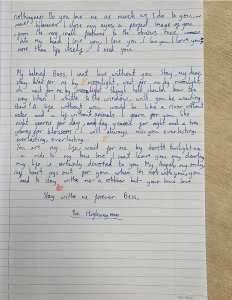 nothingness. Do you love me as much as I do to you,
whenever I close my eyes, a perfect image of you
the very small to the obvious trees,
into my head. I love you, I love you, I love you
more than life itself. I need you.
My beloved Bess, I can't live without you. Stay my dear,
stay. Wait for me by moonlight, wait for me by moonlight
wait for me by moonlight though hell should bar the
way. When I whistle to the window, will you be waiting
there? A life without you would be like a river without
water, and a by without animals. I yearn for you, the
night yearns for day, and day yearns for night and a tree
yearns for blossom. I will always miss you, everlasting,
everlasting, everlasting.
You are my life, wait for me by twilight
a ride to my true love. I can't leave you my darling
my life is certainly devoted to you. My angel, my
my heart out for you when I'm not with you, you
need to stay with me a robber but your true love.
Stay with me forever Bess,
The Highwayman